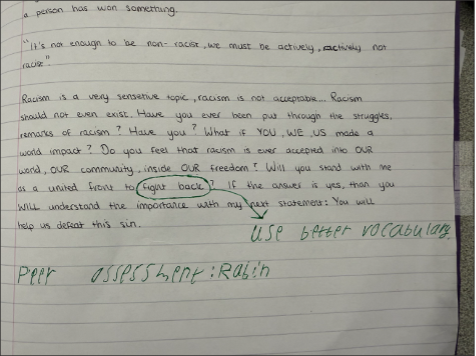 a person has won something.
"It's not enough to be non-racist, we must be actively, actively not
racist".
Racism is a very sensetive topic, racism is not acceptable... Racism
should not even exist. Have you ever been put through the struggles,
remarks of racism? Have you? What if YOU, WE, US made a
world impact? Do you feel that racism is ever accepted into OUR
world, OUR community, inside OUR freedom? Will you stand with me
as a united front to fight back? If the answer is yes, than you
will understand the importance with my next statement: You will
help us defeat this sin.
Use better vocabulary
Peer assessment: Rabin